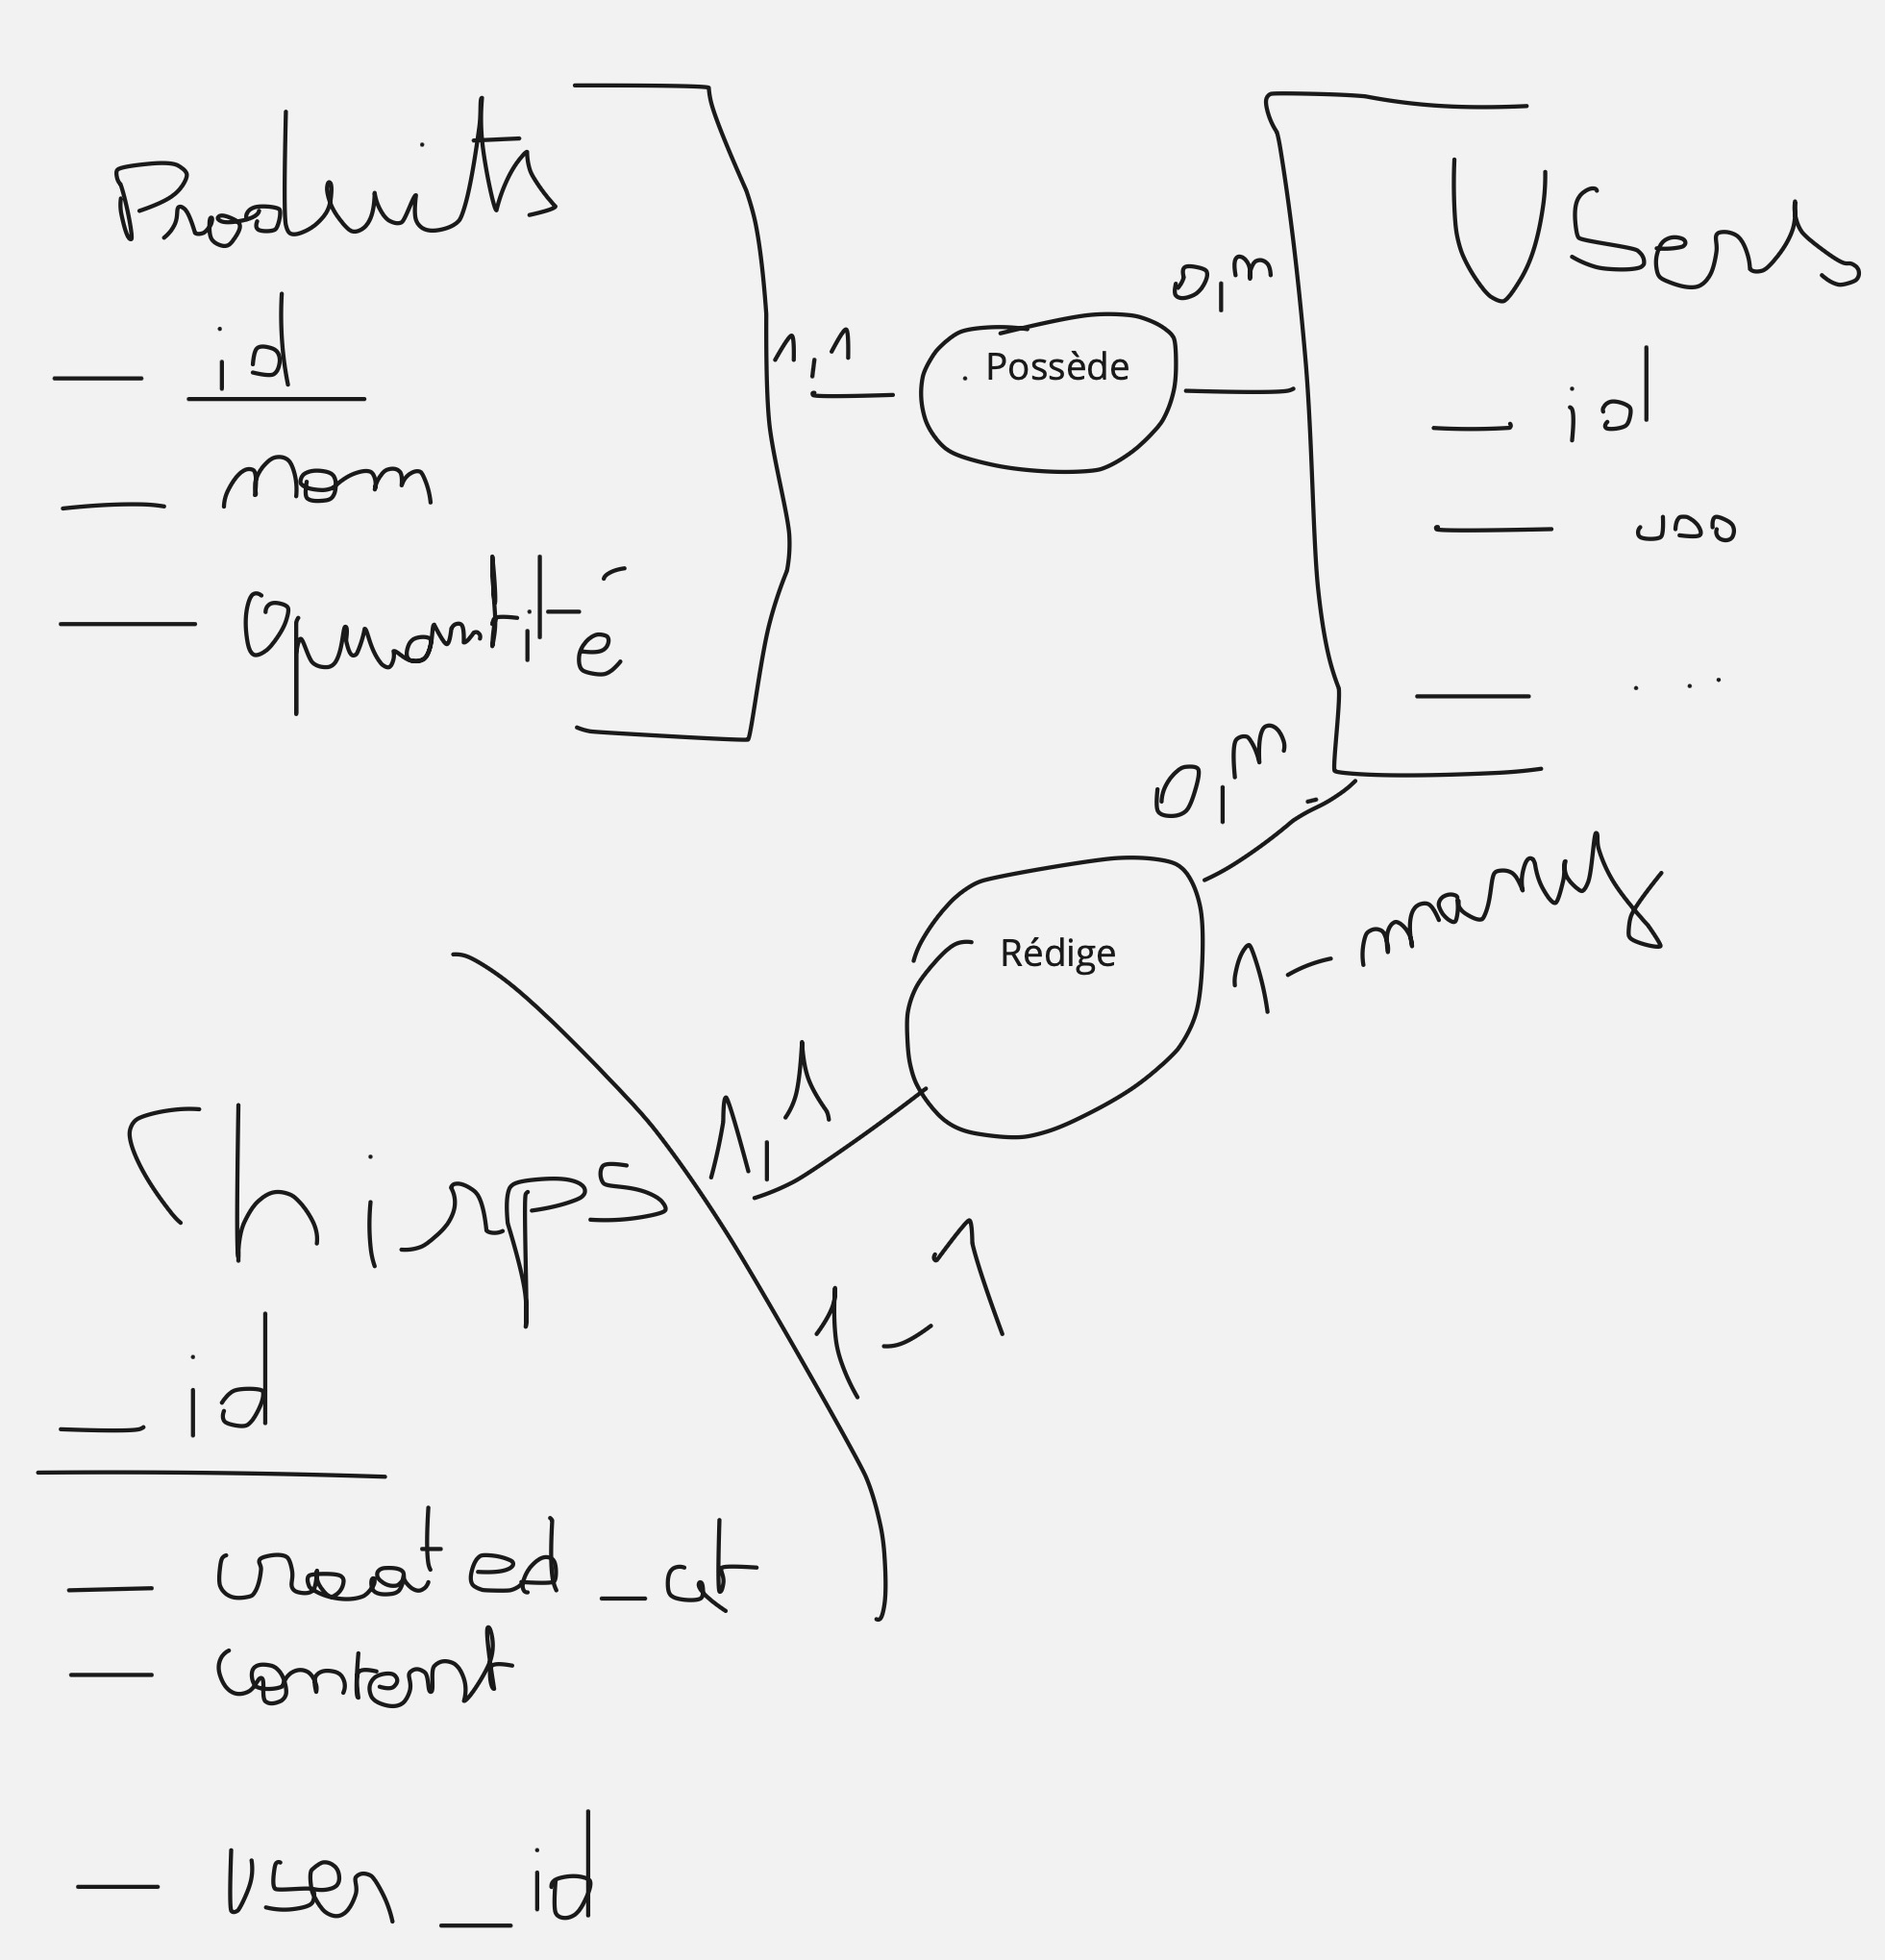 Produits
— id
— nom
— quantité
1,1
Possède
0,n
Users
— id
— ...
0,n
Rédige
1 - many
1,1
1 - 1
Chirps
— id
— created_at
— content
— user_id